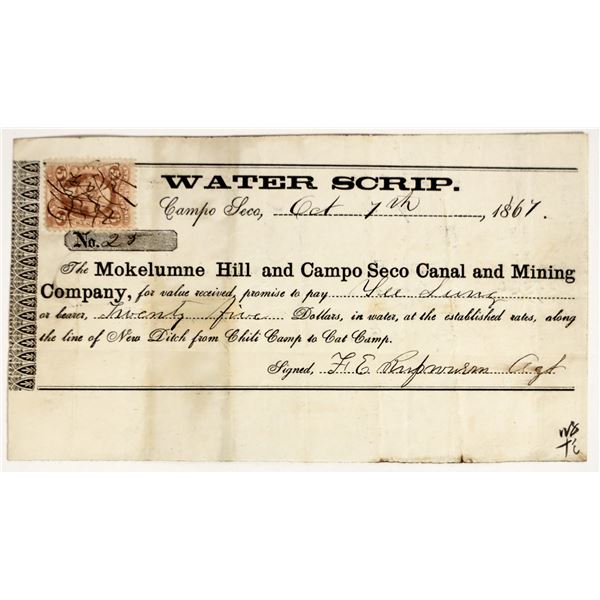 WATER SCRIP.
Campo Seco, Oct 7th, 1867.
No. 28
The Mokelumne Hill and Campo Seco Canal and Mining
Company, for value received, promise to pay Yee Lung
or bearer, Twenty five Dollars, in water, at the established rates, along
the line of New Ditch from Chili Camp to Cat Camp.
Signed, F. E. Agt